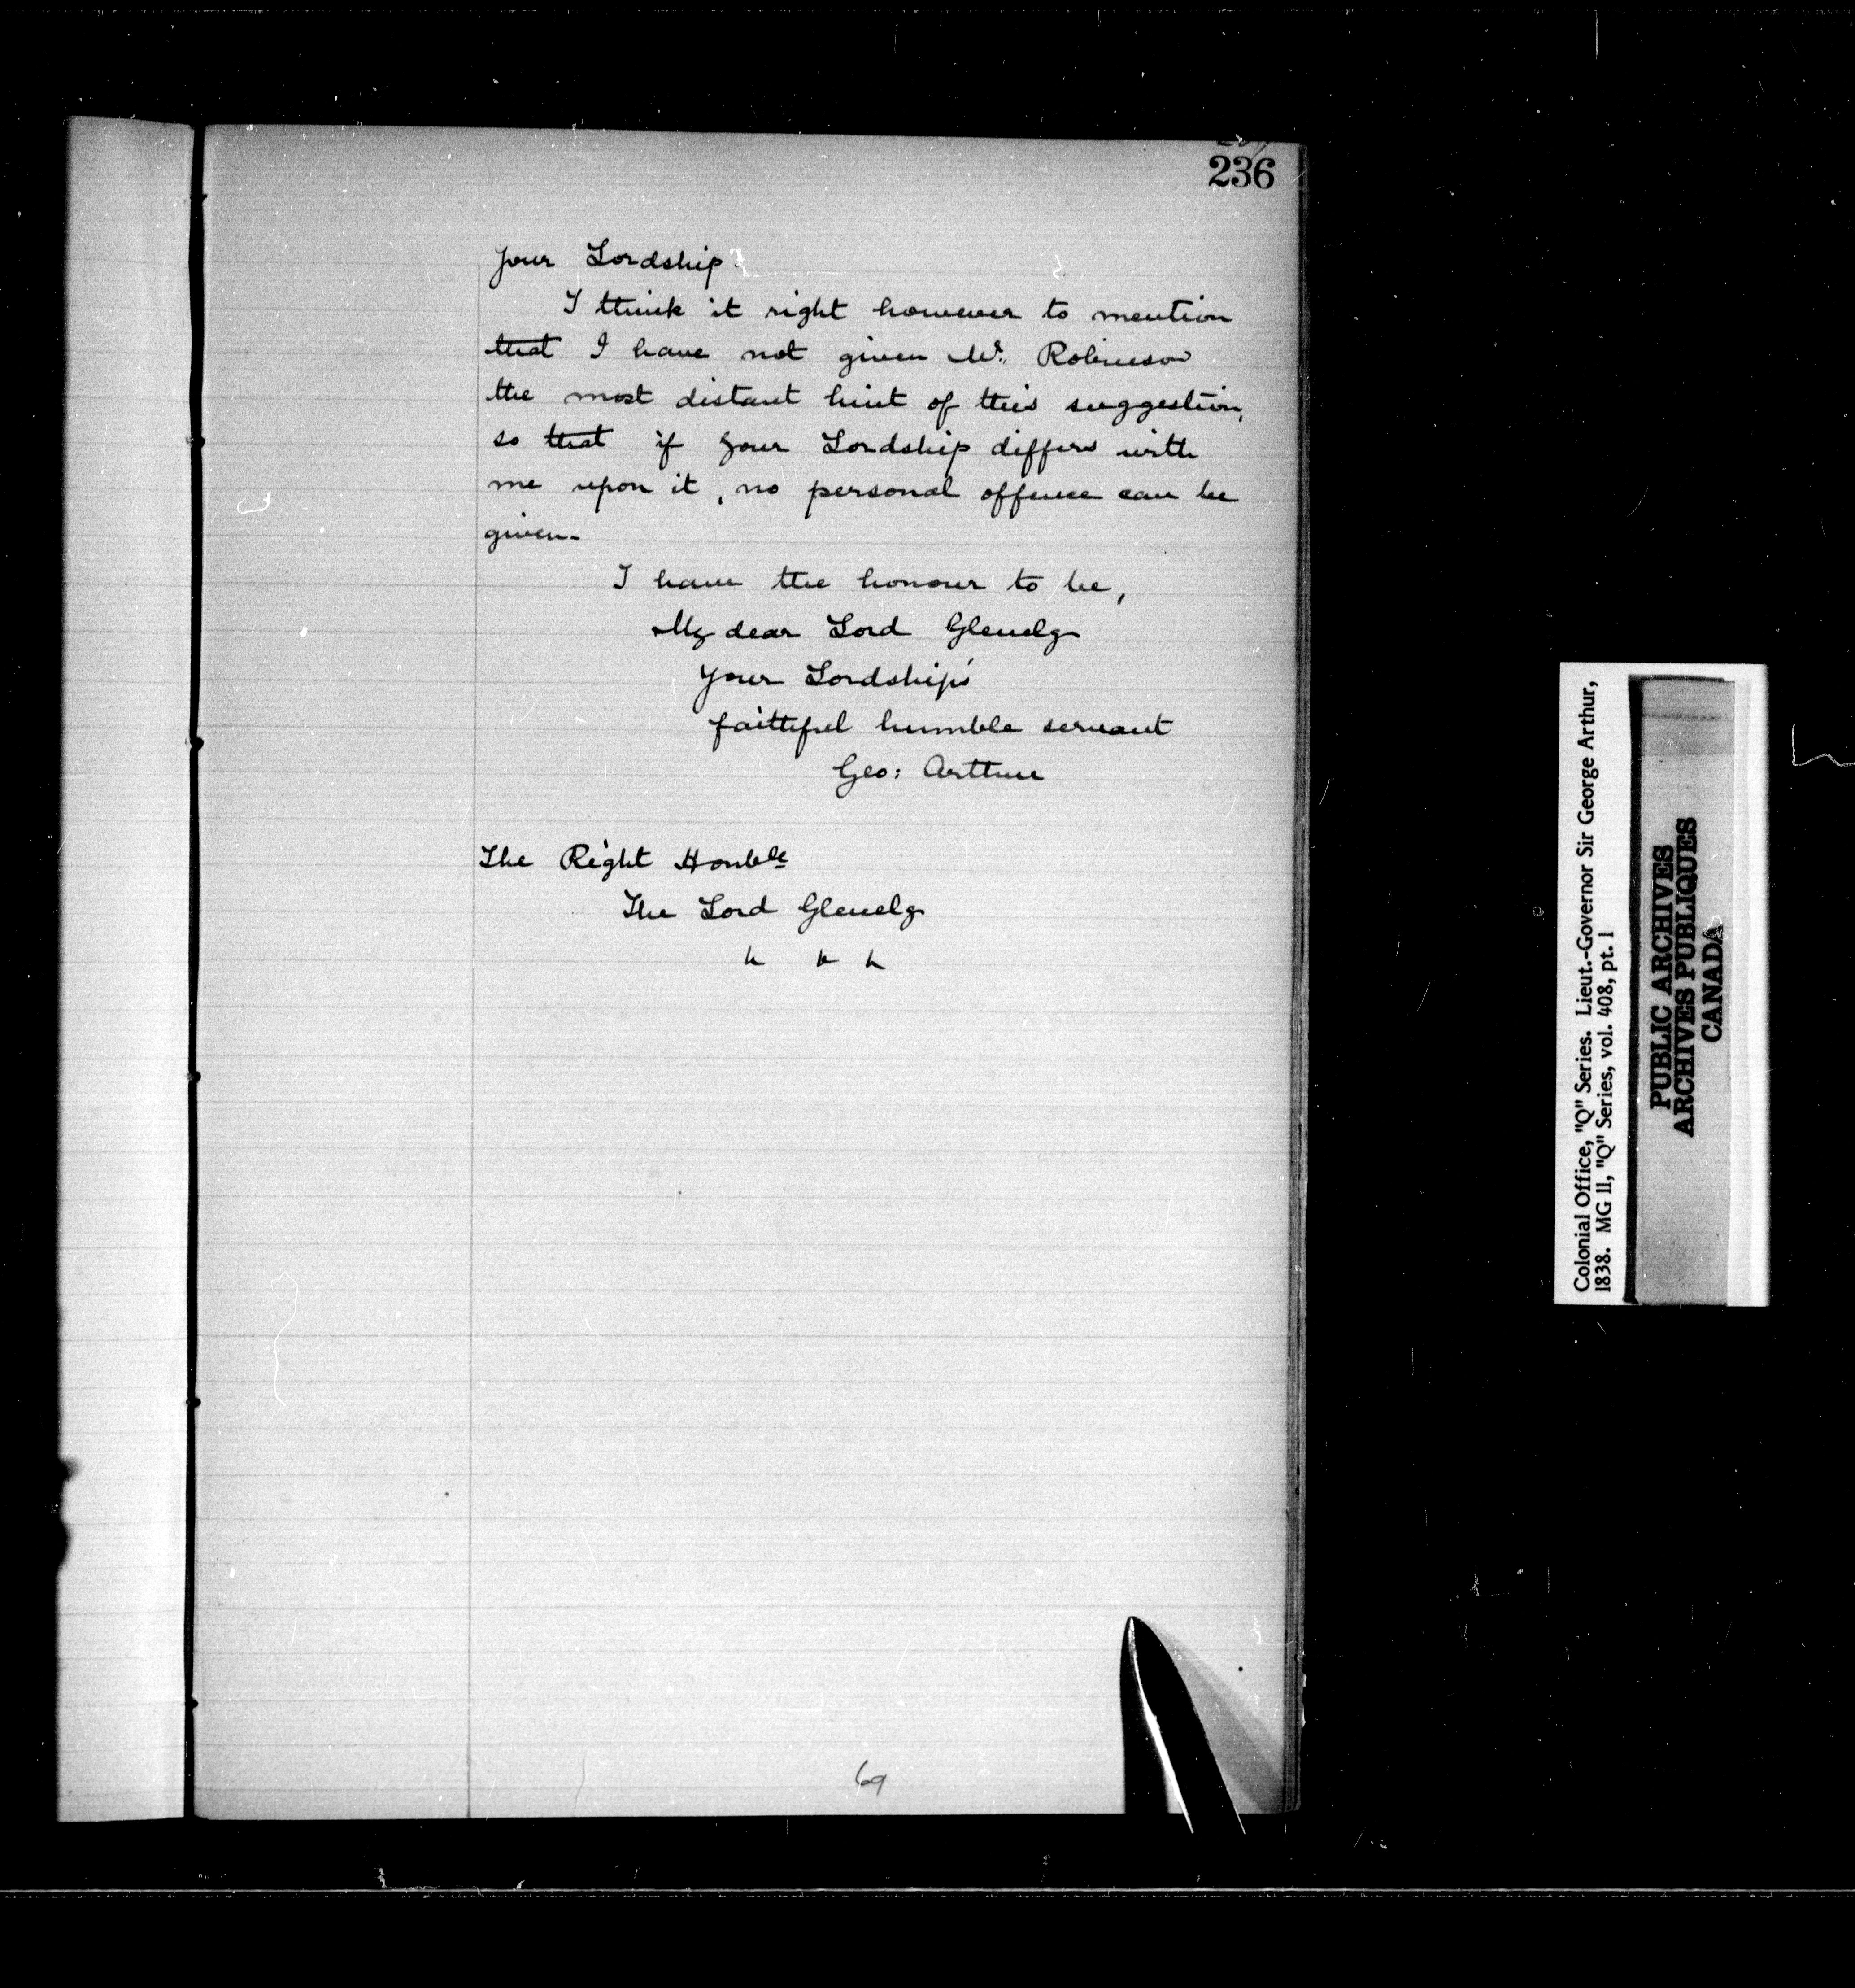 236
your Lordship.
I think it right however to mention
that I have not given Mr. Robinson
the most distant hint of this suggestion,
so that if your Lordship differs with
me upon it, no personal offence can be
given.
I have the honour to be,
My dear Lord Glenelg
Your Lordship's
faithful humble servant
Geo: Arthur
The Right Honble
The Lord Glenelg
69
Colonial Office, "Q" Series. Lieut.-Governor Sir George Arthur,
1838. MG 11, "Q" Series, vol. 408, pt. 1
PUBLIC ARCHIVES
ARCHIVES PUBLIQUES
CANADA